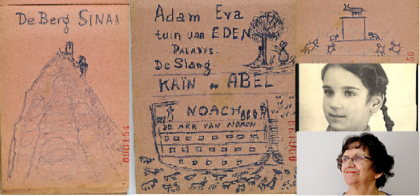 De Berg SINAI
Adam Eva
tuin van EDEN
PARADYS.
De Slang
KAÏN en ABEL
NOACH
DE ARK VAN NOACH